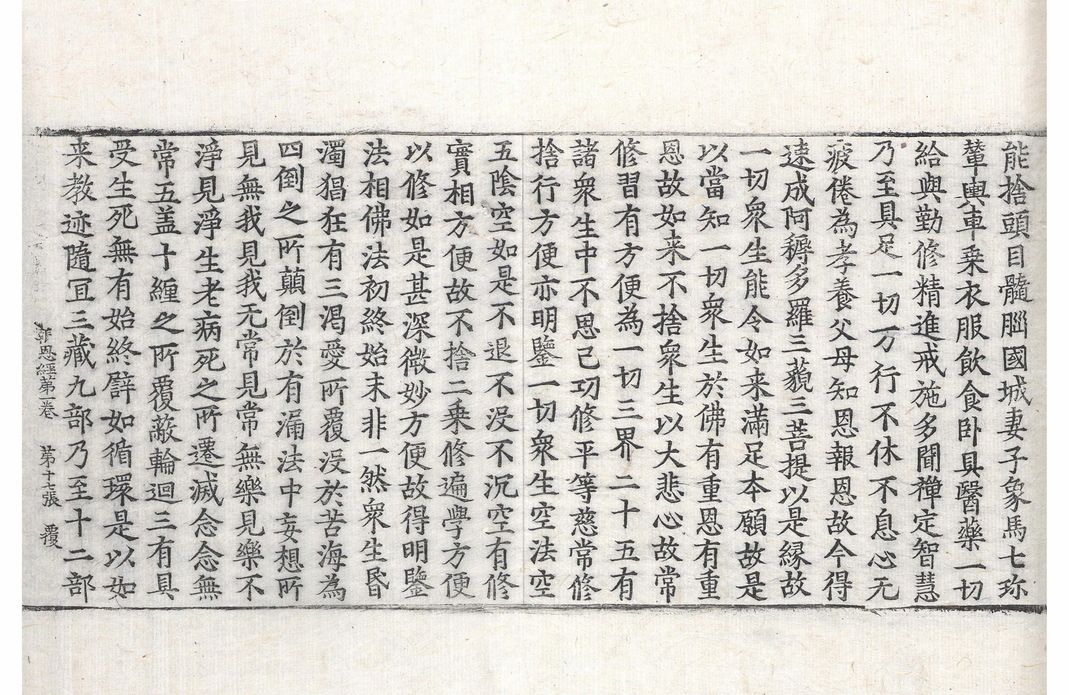 能捨頭目髓𦛁國城妻子象馬七珎
輦輿車乗衣服飲食卧具醫藥一切
給與勤修精進戒施多聞禪定智慧
乃至具足一切万行不休不息心无
疲倦為孝養父母知恩報恩故今得
速成阿耨多羅三藐三菩提以是縁故
一切衆生能令如来滿足本願故是
以當知一切衆生於佛有重恩有重
恩故如来不捨衆生以大悲心故常
修習有方便為一切三界二十五有
諸衆生中不思己功修平等慈常修
捨行方便亦明鑒一切衆生空法空
五陰空如是不退不没不沉空有修
實相方便故不捨二乗修遍學方便
以修如是甚深微妙方便故得明鑒
法相佛法初終始末非一然衆生昏
濁猖狂有三渴愛所覆没於苦海為
四倒之所顛倒於有漏法中妄想所
見無我見我无常見常無樂見樂不
淨見淨生老病死之所遷滅念念無
常五盖十纏之所覆蔽輪迴三有具
受生死無有始終譬如循環是以如
来教迹隨冝三藏九部乃至十二部
報恩經第一卷 第十張 覆